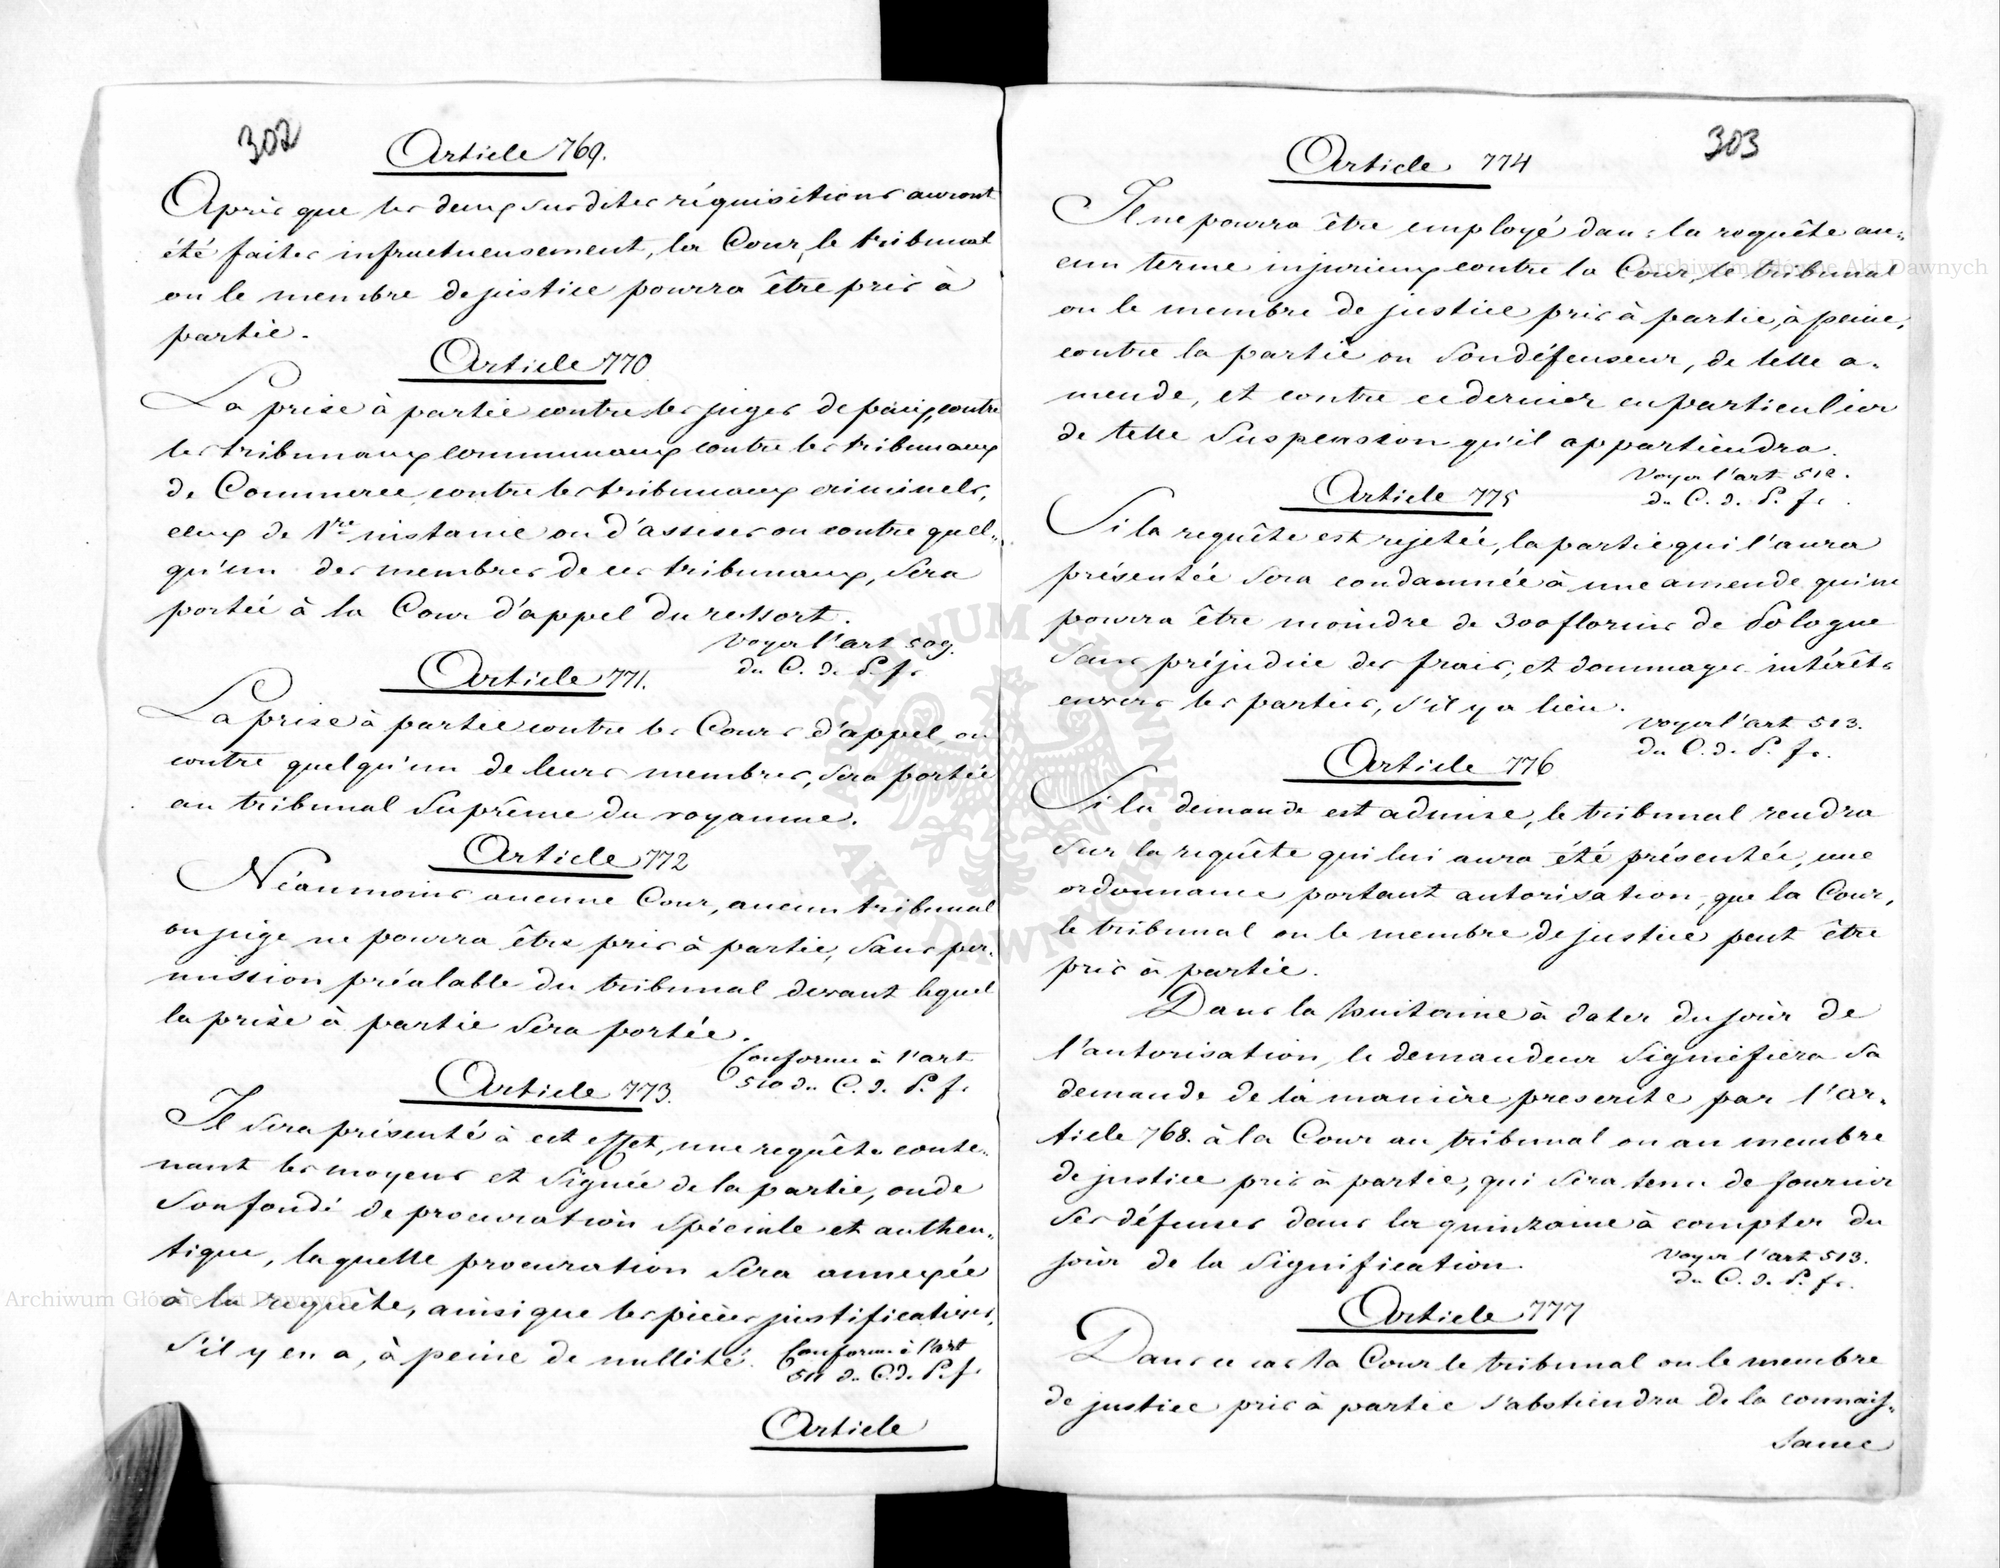 302
Article 769.
Après que les deux susdites réquisitions auront
été faites infructueusement, la Cour, le tribunal
ou le membre de justice pourra être pris à
partie.
Article 770
La prise à partie contre les juges de paix, contre
les tribunaux communaux contre les tribunaux
de Commerce, contre les tribunaux criminels,
ceux de 1re instance ou d'assises ou contre quel-
qu'un des membres de ces tribunaux, sera
portée à la Cour d'appel du ressort.
Voyer l'art 509.
du C. d. P. fr
Article 771.
La prise à partie contre les Cours d'appel, ou
contre quelqu'un de leurs membres, sera portée
au tribunal Suprême du royaume.
Article 772
Néanmoins aucune Cour, aucun tribunal
ou juge ne pourra être pris à partie, sans per-
mission préalable du tribunal devant lequel
la prise à partie sera portée.
Conforme à l'art
510 du C. d. P. fr
Article 773.
Il sera présenté à cet effet, une requête conte-
nant les moyens et signée de la partie, ou de
son fondé de procuration spéciale et authen-
tique, laquelle procuration sera annexée
à la requête, ainsi que les pièces justificatives,
s'il y en a, à peine de nullité.
Conforme à l'art
511 du C. d. P. fr
Article
303
Article 774
Il ne pourra être employé dans la requête au-
cun terme injurieux contre la Cour, le tribunal
ou le membre de justice pris à partie, à peine,
contre la partie ou son défenseur, de telle a-
mende, et contre ce dernier en particulier
de telle suspension qu'il appartiendra.
Voyer l'art 512.
du C. d. P. fr.
Article 775
Si la requête est rejetée, la partie qui l'aura
présentée sera condamnée à une amende qui ne
pourra être moindre de 300 florins de Pologne
sans préjudice des frais, et dommages intérêts
envers les parties, s'il y a lieu.
Voyer l'art 513.
du C. d. P. fr.
Article 776
Si la demande est admise, le tribunal rendra
sur la requête qui lui aura été présentée, une
ordonnance portant autorisation, que la Cour,
le tribunal ou le membre de justice peut être
pris à partie.
Dans la huitaine à dater du jour de
l'autorisation, le demandeur signifiera sa
demande de la manière prescrite par l'ar-
ticle 768. à la Cour au tribunal ou au membre
de justice pris à partie, qui sera tenu de fournir
ses défenses dans la quinzaine à compter du
jour de la signification.
Voyer l'art 513.
du C. d. P. fr.
Article 777
Dans ce cas la Cour le tribunal ou le membre
de justice pris à partie s'abstiendra de la connais-
sance
Archiwum Główne Akt Dawnych
Archiwum Główne Akt Dawnych
ARCHIWUM GŁÓWNE AKT DAWNYCH